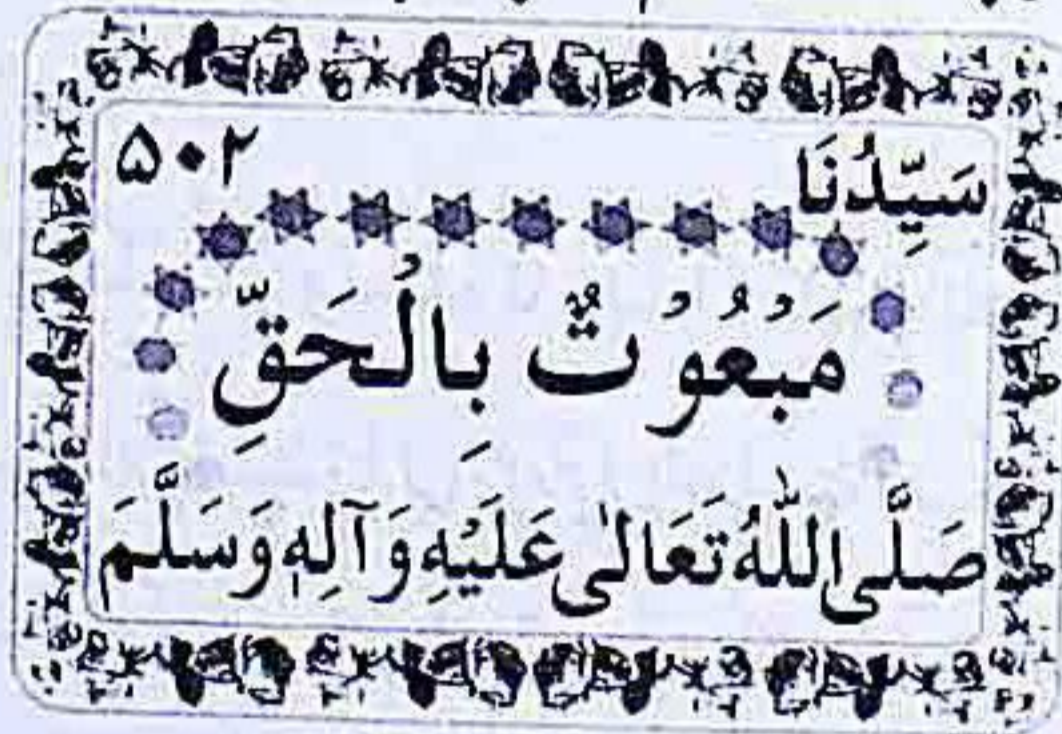 سَيِّدُنَا ۵۰۲
مَبْعُوْثٌ بِالْحَقِّ
صَلَّی اللّٰهُ تَعَالٰی عَلَيْهِ وَآلِهٖ وَسَلَّمَ